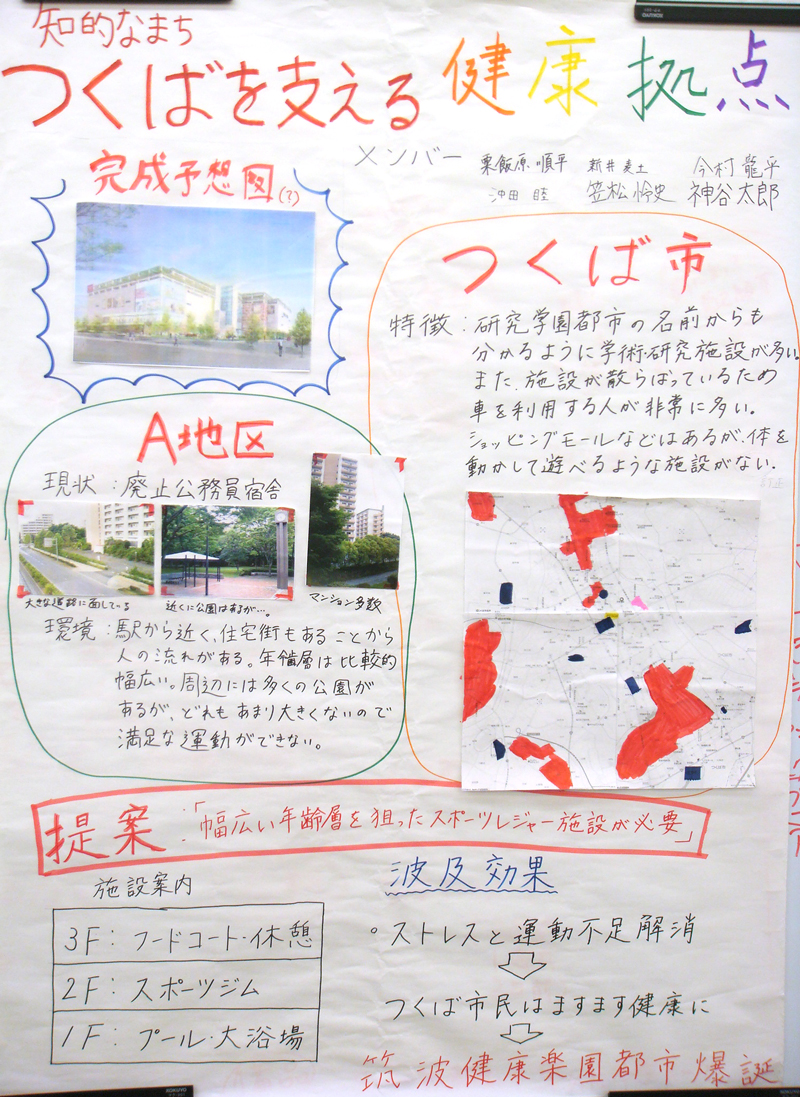 知的なまち
つくばを支える健康拠点
メンバー 栗飯原順平 新井美土 今村龍平
沖田睦 笠松怜史 神谷太郎
完成予想図(?)
つくば市
特徴:研究学園都市の名前からも
分かるように学術・研究施設が多い。
また、施設が散らばっているため
車を利用する人が非常に多い。
ショッピングモールなどはあるが、体を
動かして遊べるような施設がない。
A地区
現状:廃止公務員宿舎
大きな道路に面している
近くに公園はあるが…。
マンション多数
環境:駅から近く、住宅街もあることから
人の流れがある。年齢層は比較的
幅広い。周辺には多くの公園が
あるが、どれもあまり大きくないので
満足な運動ができない。
提案:「幅広い年齢層を狙ったスポーツレジャー施設が必要」
施設案内
3F:フードコート・休憩
2F:スポーツジム
1F:プール・大浴場
波及効果
・ストレスと運動不足解消
つくば市民はますます健康に
筑波健康楽園都市爆誕
KOKUYO